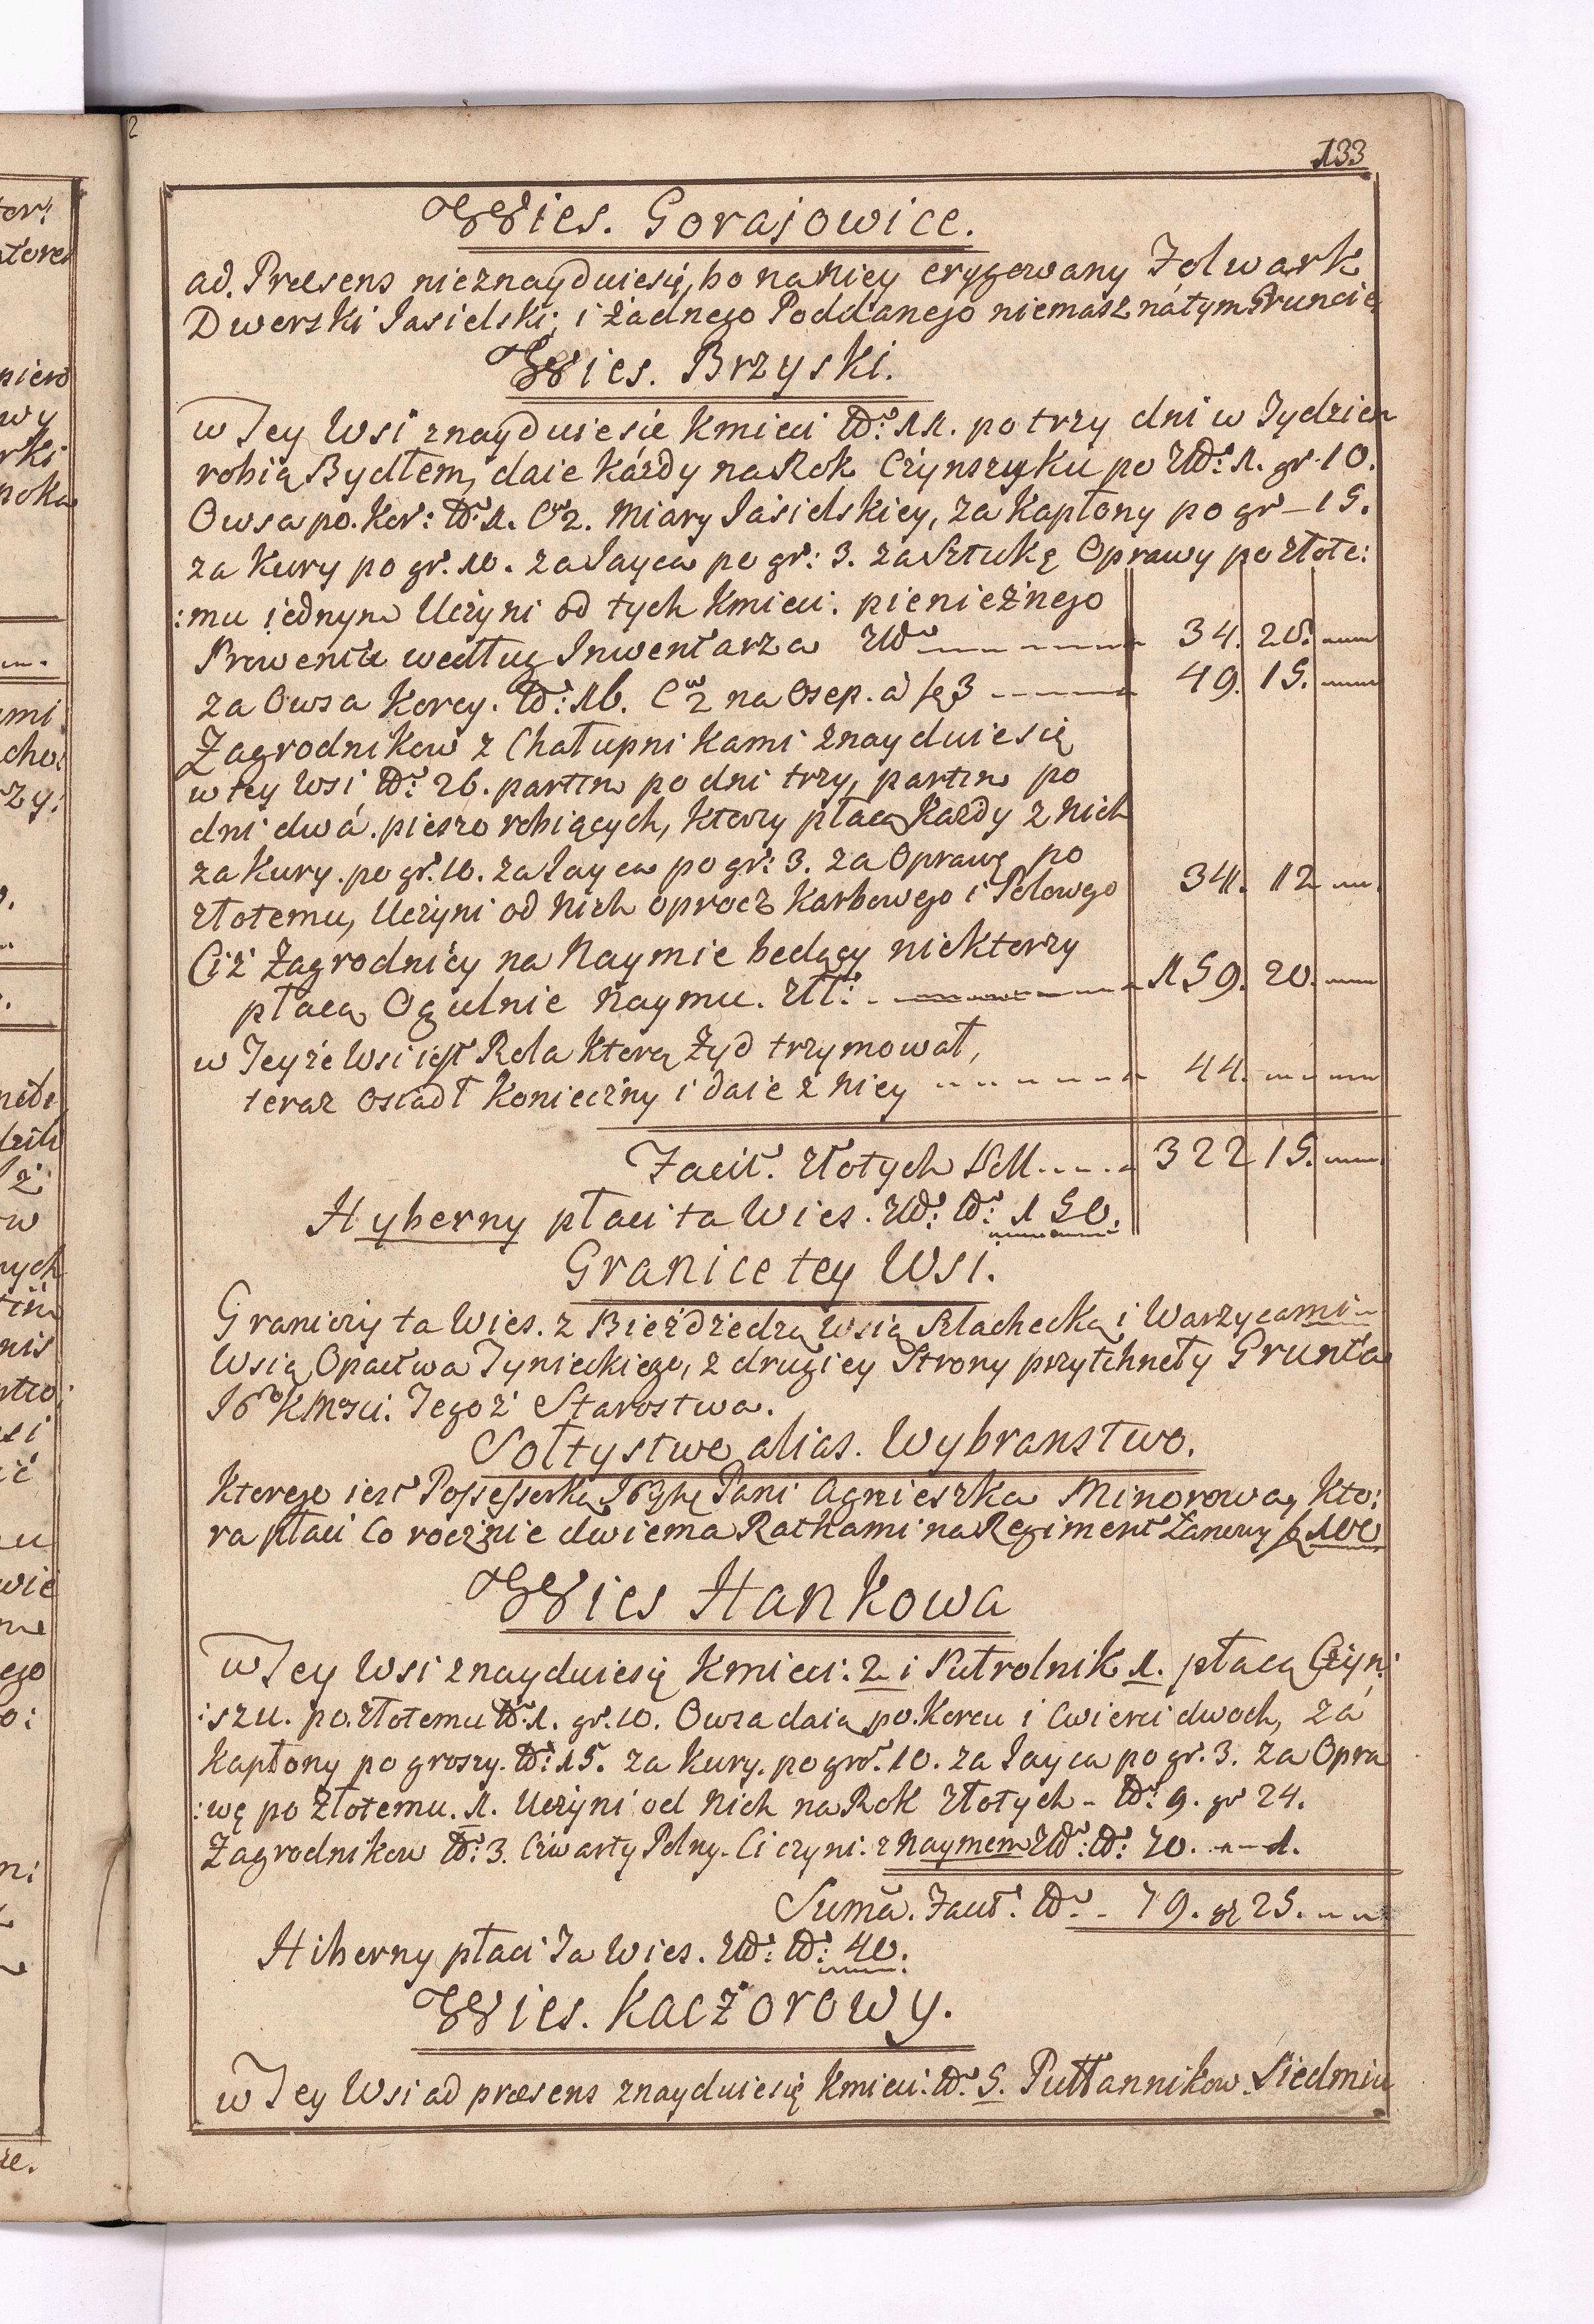 133
Wies. Gorajowice.
ad. Præsens nieznayduiesię, bo na Niey erygowany Folwark
Dworski Jasielski, i żadnego Poddanego niemasz na tym Gruncie,
Wies. Brzyski.
w Tey Wsi znayduiesie Kmieci No: 11. po trzy dni w Tydzien
robią Bydłem, daie każdy na Rok Czynszyku po Złł: 1. gr. 10.
Owsa po. Kor: No: 1. Cw 2. Miary Jasielskiey, za Kapłony po gr – 15.
za Kury po gr. 10. za Jayca po gr: 3. za Sztukę Oprawy po złote:
:mu iednym Uczyni od tych Kmieci. pieniężnego
Prowentu według Inwentarza Złł 34. 20.
za Owsa Korcy. No: 16. Cw 2 na Osep. a f 3 49. 15.
Zagrodnikow z Chałupnikami znayduiesię
w tey Wsi No: 26. partim po dni trzy, partim po
dni dwá. pieszo robiących, ktorzy płacą Każdy z Nich
za Kury. po gr. 10. za Jayca po gr: 3. za Oprawę po
złotemu, Uczyni od Nich oprocz Karbowego i Polowego 34. 12
Ciż Zagrodnicy na Naymie będący niektorzy
płacą Ogulnie Naymu. Złł: 159. 20.
w Teyże Wsi iest Rola ktorą Żyd trzymował,
teraz osiadł Konieczny i daie z Niey 44.
Facit. złotych Poll 322 15.
Hyberny płaci ta Wies. Złł: No: 150.
Granice tey Wsi.
Graniczy ta Wies. z Bieździedzą Wsią Szlachecką i Warzycami
Wsią Opactwa Tynieckiego, z drugiey Strony przytchnęły Grunta
JKMsci. Tegoż Starostwa.
Sołtystwo alias. Wybranstwo.
Ktorego iest Possessorką Pani Agnieszka Minorowa, kto:
ra płaci Corocznie dwiema Rathami na Regiment Łanowy f 100
Wies Hankowa
w Tey Wsi znayduiesię Kmieci: 2 i Pułrolnik 1. płacą Czyn:
:szu. po. złotemu No. 1. gr. 10. Owsa daią po. Korcu i Cwierci dwoch, zá
Kapłony po groszy. No: 15. za Kury. po gro. 10. za Jayca po gr. 3. za Opra
:wę po Złotemu. 1. Uczyni od Nich na Rok złotych – No: 9. gr 24.
Zagrodnikow No: 3. Czwarty Polny. Ci czyni: z Naymem Złł: No: 70. – 1.
Suma. Facit. No – 79. gr 25.
Hiberny płaci Ta Wies. Złł: No: 40.
Wies. Kaczorowy.
w Tey Wsi ad præsens znayduiesię Kmieci: No. 5. Pułłannikow. Siedmiu